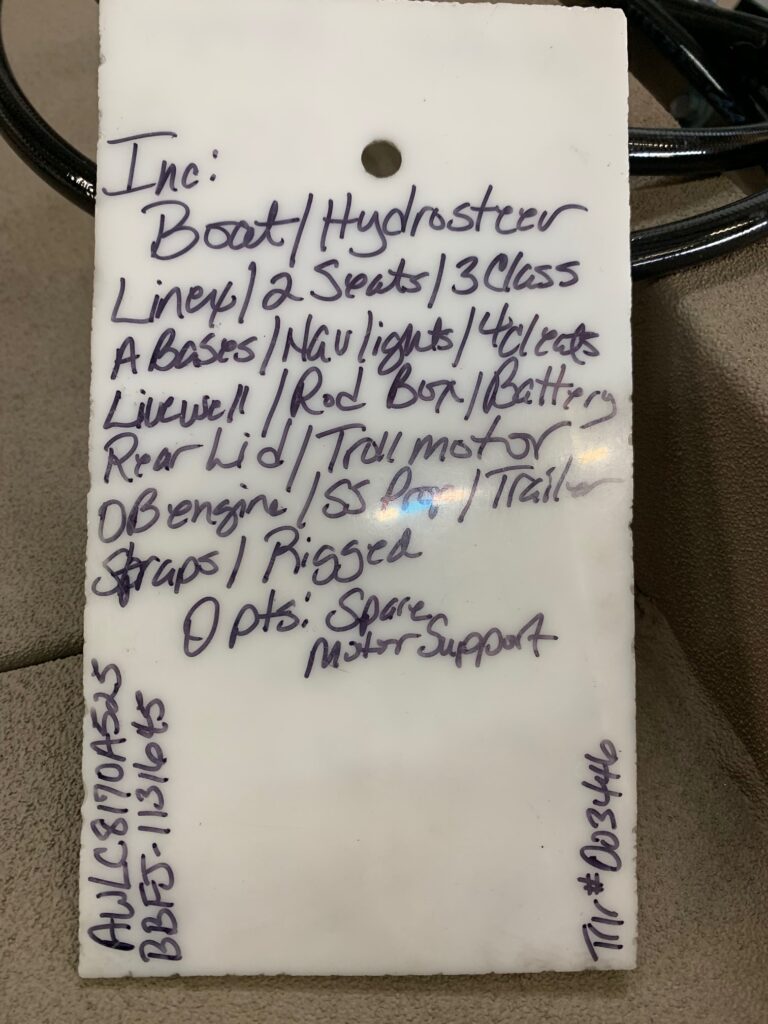 Inc:
Boat/Hydrosteer
Linex/2 Seats/3 Class
A Bases/Nav lights/4 cleats
Livewell/Rod Box/Battery
Rear Lid/Troll motor
OB engine/SS Prop/Trailer
Straps/Rigged
Opts: Spare
Motor Support
AWLC8170A525
BBFJ-1131645
Trlr#003446